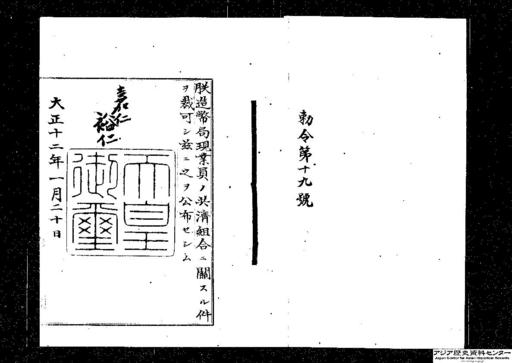 勅令第十九號
朕造幣局現業員ノ共済組合ニ關スル件
ヲ裁可シ茲ニ之ヲ公布セシム
嘉仁
裕仁
天皇
御璽
大正十二年一月二十日
アジア歴史資料センター
Japan Center for Asian Historical Records